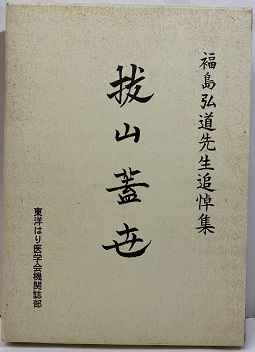 福島弘道先生追悼集
拔山蓋世
東洋はり医学会機関誌部